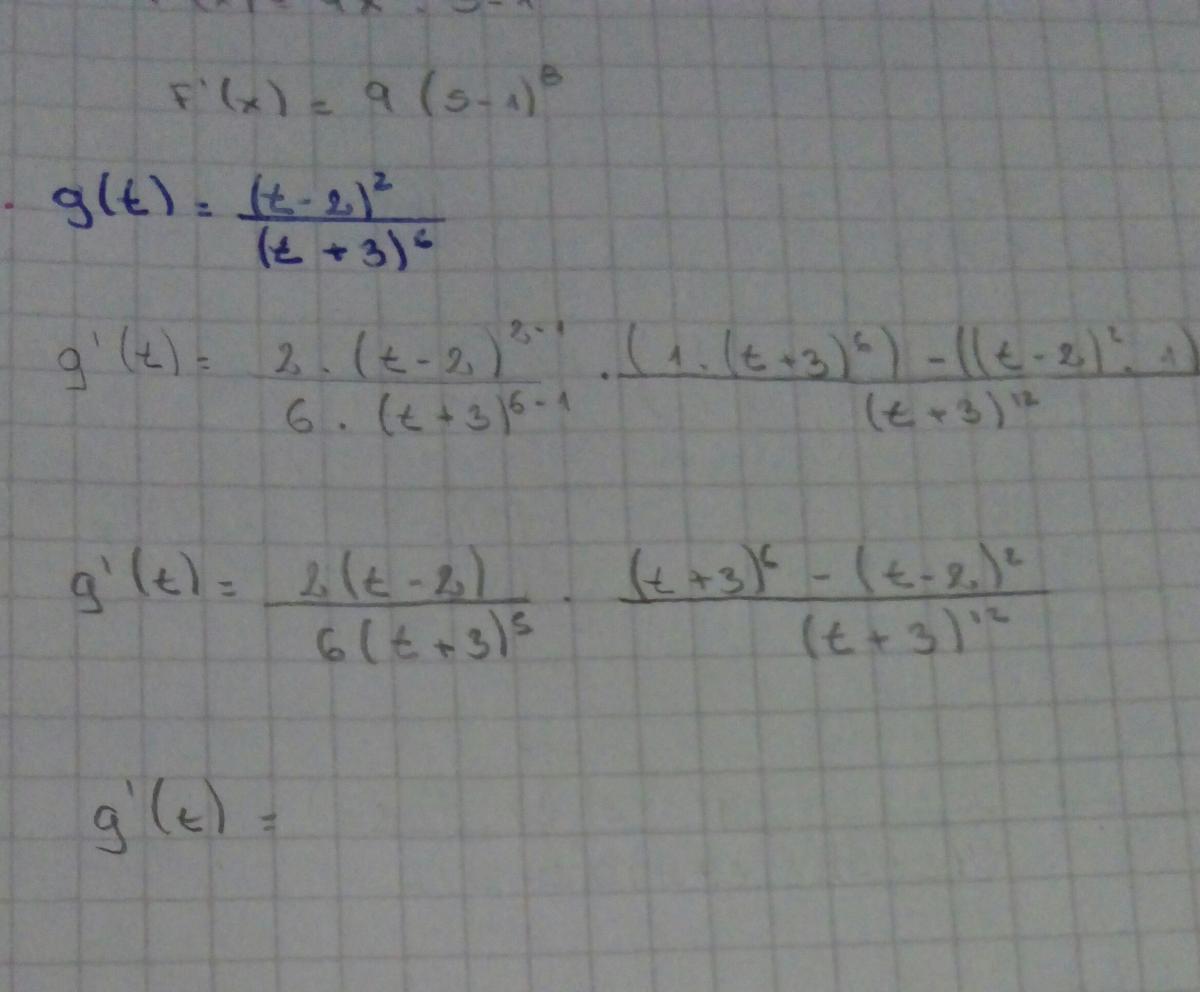 F'(x) = 9 (5-1)⁸
g(t) = (t-2)² / (t+3)⁶
g'(t) = 2 · (t-2)²⁻¹ / 6 · (t+3)⁶⁻¹ · (1 · (t+3)⁶) - ((t-2)² · 1) / (t+3)¹²
g'(t) = 2(t-2) / 6(t+3)⁵ · (t+3)⁶ - (t-2)² / (t+3)¹²
g'(t) =